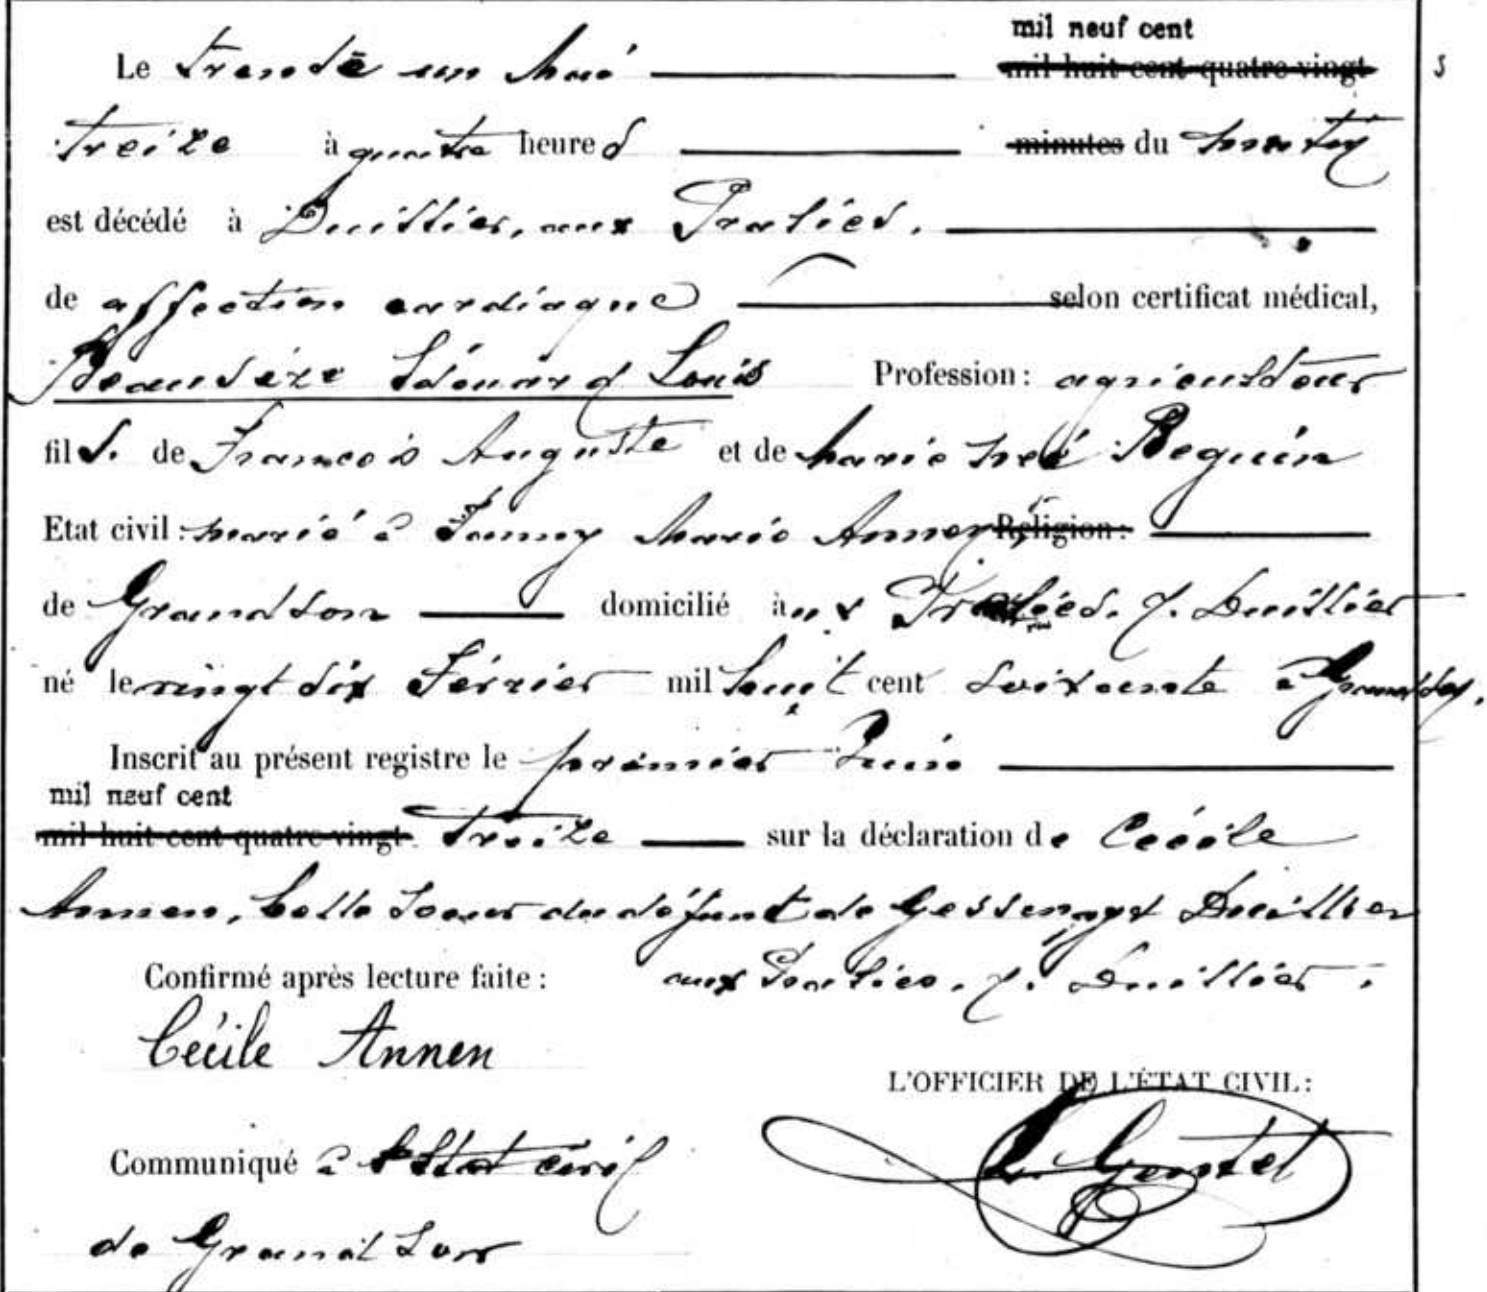 mil neuf cent
Le trente un Mai mil huit cent quatre-vingt
treize à quatre heures minutes du matin
est décédé à Duillier, aux Pralies.
de affection cardiaque selon certificat médical,
Beauverd Edouard Louis Profession: agriculteur
fils. de François Auguste et de Marie née Beguin
Etat civil: marié à Fanny Marie Annen Religion:
de Grandson domicilié aux Pralies. s. Duillier
né le vingt six Février mil huit cent soixante à Grandson.
Inscrit au présent registre le premier Juin
mil neuf cent
mil huit cent quatre-vingt treize sur la déclaration de Cécile
Annen, belle soeur du défunt de Gessenay et Duillier
Confirmé après lecture faite: aux Pralies. s. Duillier.
Cécile Annen
L'OFFICIER DE L'ÉTAT CIVIL:
Communiqué à l'Etat civil
de Grandson